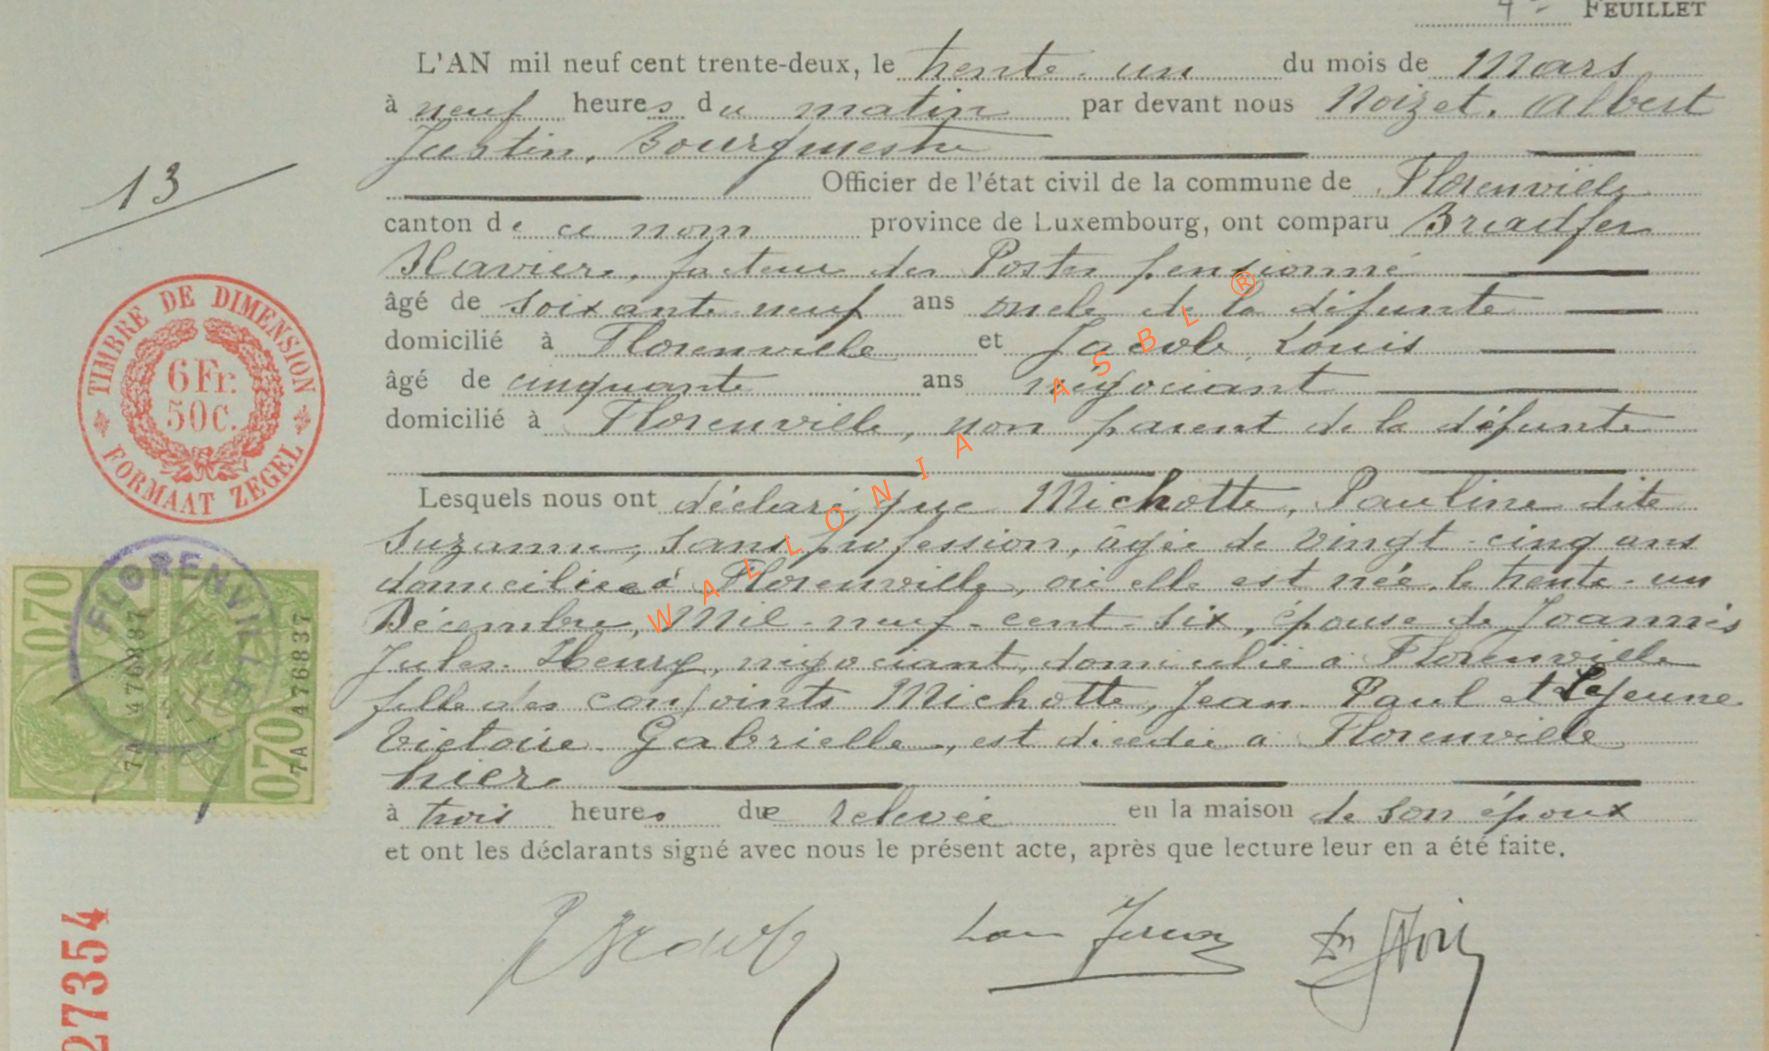 4e FEUILLET
L'AN mil neuf cent trente-deux, le trente-un du mois de Mars
à neuf heures du matin par devant nous Noizet, Albert
Justin, Bourgmestre
13
Officier de l'état civil de la commune de Florenville
canton de ce nom province de Luxembourg, ont comparu
Xavier, facteur des Postes pensionné
âgé de soixante-neuf ans oncle de la défunte
domicilié à Florenville et Jacob, Louis
âgé de cinquante ans négociant
domicilié à Florenville, non parent de la défunte
Lesquels nous ont déclaré que Michotte, Pauline dite
Suzanne, sans profession, âgée de vingt-cinq ans
domiciliée à Florenville, où elle est née, le trente-un
Décembre, Mil-neuf-cent-six, épouse de Joannès
Jules-Henry, négociant, domicilié à Florenville
fille des conjoints Michotte, Jean-Paul et Lejeune
Victoire-Gabrielle, est décédée à Florenville
hier
à trois heures de relevée en la maison de son époux
et ont les déclarants signé avec nous le présent acte, après que lecture leur en a été faite.
TIMBRE DE DIMENSION
6 Fr.
50 c.
FORMAAT ZEGEL
FLORENVILLE
070
7A 476837
070
7A 476837
27354
WALLONIA ASBL ®